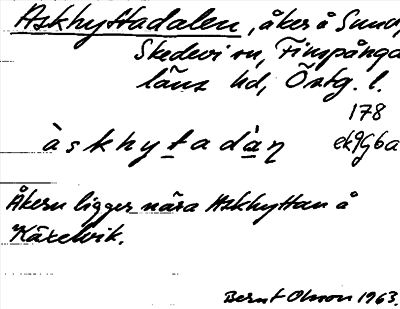 Askhyttadalen, åker å Sund,
Skedevi sn, Finspånga
läns hd, Östg. l.
178
àskhytadàn̥ ek9G6a
Åkern ligger nära Askhyttan å
Käxelvik.
Bernt Olsson 1963.